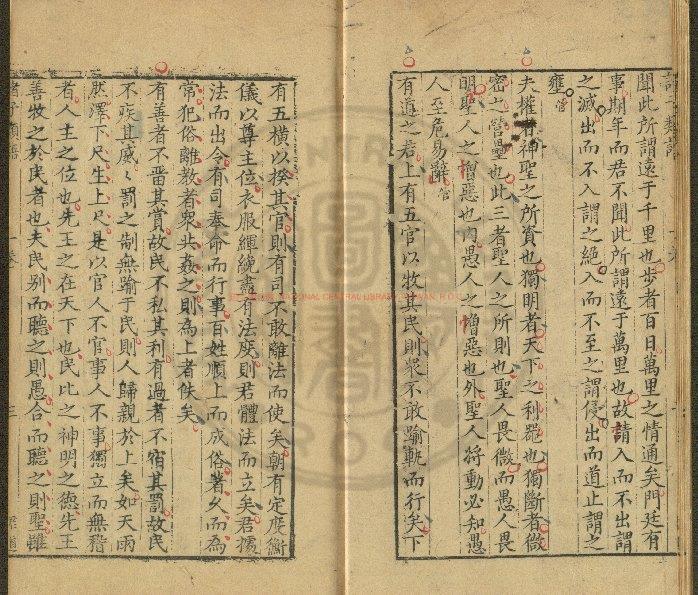 諸子類語
聞此所謂遠于千里也步者百日萬里之情通矣門廷有
事期年而君不聞此所謂遠于萬里也故請入而不出謂
之滅出而不入謂之絕入而不至之謂侵出而道止謂之
壅管
夫權者神聖之所資也獨明者天下之利器也獨斷者微
密之營壘也此三者聖人之所則也聖人畏微而愚人畏
明聖人之憎惡也內愚人之憎惡也外聖人將動必知愚
人至危易辭管
有道之君上有五官以牧其民則衆不敢踰軌而行矣下
有五横以揆其官則有司不敢離法而使矣朝有定度衡
儀以尊主位衣服緷絻盡有法度則君體法而立矣君據
法而出令有司奉命而行事百姓順上而成俗著久而為
常犯俗離教者衆共姦之則為上者佚矣
有善者不畱其賞故民不私其利有過者不宿其罰故民
不疾其威威罰之制無踰于民則人歸親於上矣如天雨
然澤下尺生上尺是以官人不官事人不事獨立而無稽
者人主之位也先王之在天下也民比之神明之德先王
善牧之於民者也夫民别而聽之則愚合而聽之則聖雖
諸子類語
NATIONAL CENTRAL LIBRARY